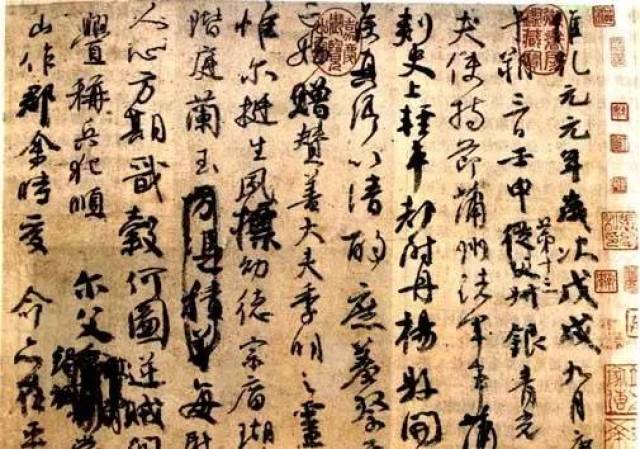 維乾元元年歲次戊戌九月庚
午朔三日壬申第十三從父銀青光
夫使持節蒲州諸軍事蒲
刺史上輕車都尉丹楊縣開
侯真卿以清酌庶羞祭于
亡姪贈贊善大夫季明之靈
惟爾挺生夙標幼德宗廟瑚
階庭蘭玉方憑積善每慰
人心方期戩穀何圖逆賊閒
釁稱兵犯順爾父竭誠常
山作郡余時受命亦在平